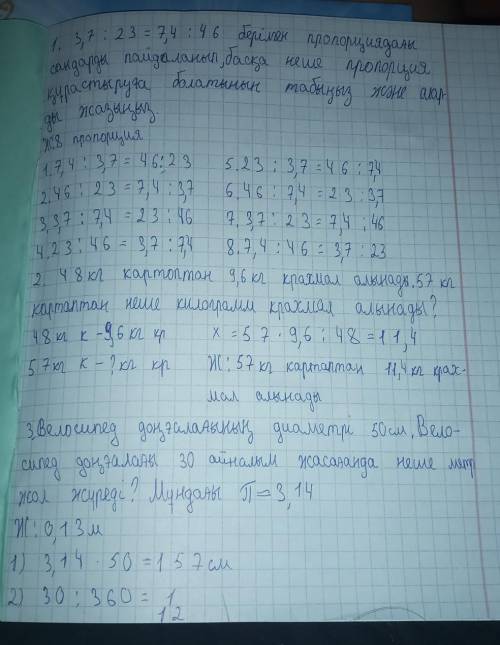 1. 3,7 : 23 = 7,4 : 46 берілген пропорциядағы
сандарды пайдаланып, басқа неше пропорция
құрастыруда болатынын табыңыз және олар-
ды жазыңыз.
Ж:8 пропорция
1. 7,4 : 3,7 = 46 : 23
2. 46 : 23 = 7,4 : 3,7
3. 3,7 : 7,4 = 23 : 46
4. 23 : 46 = 3,7 : 7,4
5. 23 : 3,7 = 46 : 7,4
6. 46 : 7,4 = 23 : 3,7
7. 3,7 : 23 = 7,4 : 46
8. 7,4 : 46 = 3,7 : 23
2. 48 кг картоптан 9,6 кг крахмал алынады. 57 кг
картаптан неше килограмм крахмал алынады?
48 кг к – 9,6 кг кр
57 кг к – ? кг кр
х = 57 · 9,6 : 48 = 11,4
Ж: 57 кг картаптан 11,4 кг крах-
мал алынады
3. Велосипед доңғалағының диаметрі 50 см. Вело-
сипед доңғалағы 30 айналым жасағанда неше метр
жол жүреді? Мұндағы П = 3,14
Ж: 0,13 м
1) 3,14 · 50 = 157 см
2) 30 : 360 = 1/12